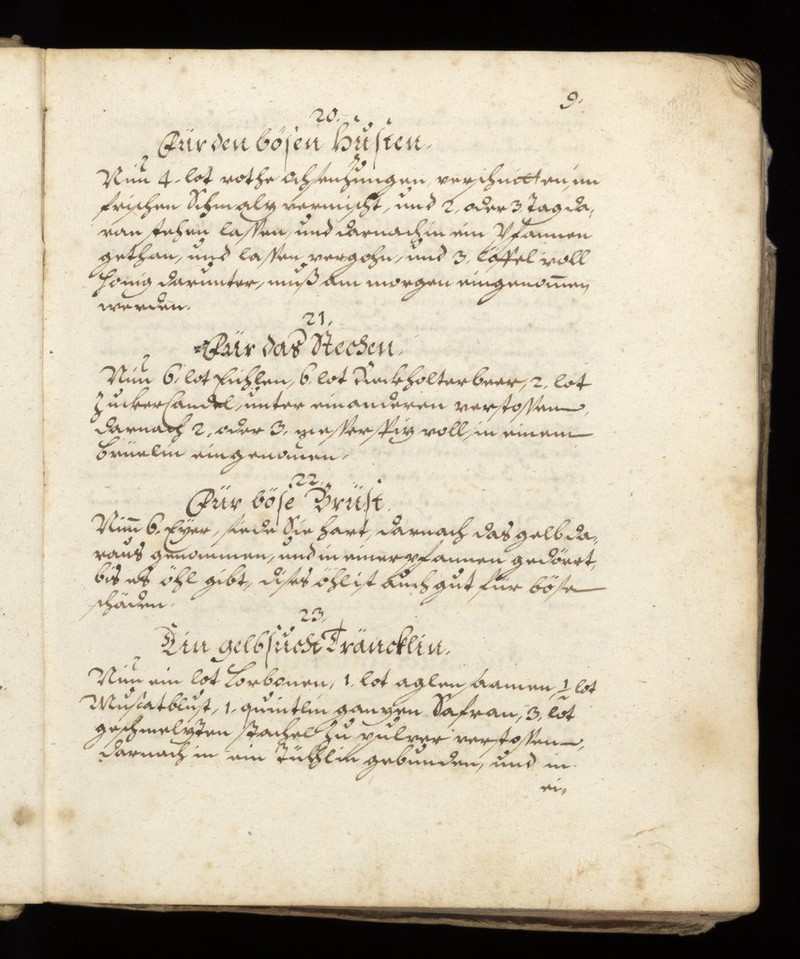 9.
20.
Für den bösen Husten.
Nim 4. lot rothe ochsenzungen, verschnitten, im
frischen Schmalz vermischt, und 2, oder 3 Tag da,
ran stehen lassen, und darnach in ein Pfannen
gethan, und lassen vergohn, und 3. Löffel voll
honig darunter, muß am morgen eingenom̄en
werden.
21.
Für das Stechen.
Nim 6. lot 6. lot Reckholterbeer, 2. lot
Zuckercandel, unter einanderen verstossen,
darnach 2, oder 3. messerspiz voll, in einem
Brüelin eingenomen.
22.
Für böse Brüst.
Nim̄ 6. Eÿer, siede Sie hart, darnach das gelb da,
raus genommen, und in einer pfannen gedörret,
bis es öhl gibt, dises öhl ist auch gut für böse
schäden.
23.
Ein gelbsucht Träncklin.
Nim ein lot Lorbonen, 1. lot aglen saamen, ½ lot
Muscatblust, 1. quintlin ganzen Safran, 3. lot
geschmelzten stachel zu pulver verstossen,
darnach in ein Tüchlin gebunden, und in
ei,